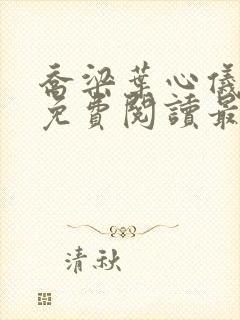 喬梁葉心儀
免費閱讀最
清秋